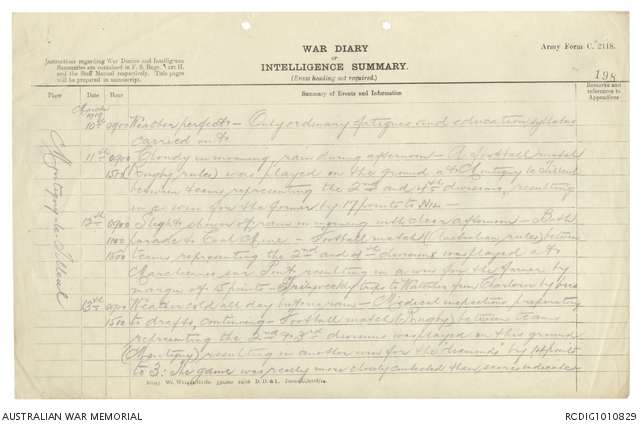 WAR DIARY
or
INTELLIGENCE SUMMARY.
(Erase heading not required.)
Army Form C. 2118.
Instructions regarding War Diaries and Intelligence
Summaries are contained in F. S. Regs., Part II.
and the Staff Manual respectively. Title pages
will be prepared in manuscript.
198
Place Date Hour Summary of Events and Information Remarks and
references to
Appendices
March
1919
Montigny-le-Tilleul
10th 0900 Weather perfect - Only ordinary fatigues and education syllabus
carried on to
11th 0900 Cloudy in morning, rain during afternoon - A football match
1500 (rugby rules) was played on the ground at Montigny le Tilleul
between teams representing the 2nd and 5th divisions, resulting
in a win for the former by 17 points to Nil -
12th 0900 Slight shower of rain in morning with clear afternoon - Bath
1100 parade to Coal Mine - Football match (Australian rules) between
1500 teams representing the 2nd and 4th divisions was played at
Marchienne au Pont, resulting in a win for the former by
margin of 15 points - trips to Waterloo from Charleroi by
13th 0900 Weather cold all day but no rain - Medical inspections preparatory
1500 to drafts, continuing - Football match (Rugby) between teams
representing the 2nd & 3rd divisions was played on this ground
(Montigny) resulting in another win for the "seconds" by points
to 3: The game was really more closely contested than scores indicate
AUSTRALIAN WAR MEMORIAL
RCDIG1010829